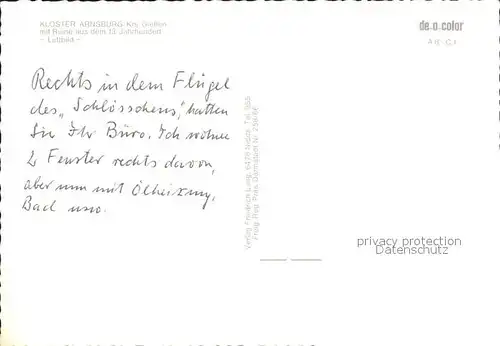 KLOSTER ARNSBURG Krs. Gießen
mit Ruine aus dem 13. Jahrhundert
– Luftbild –
de-o-color
Rechts in dem Flügel
des „Schlösschens“, hatten
Sie Ihr Büro. Ich wohne
2 Fenster rechts davon,
aber nun mit Ölheizung,
Bad usw.
Verlag Friedrich Lung, 6478 Nidda, Tel.
Freig. Reg. Präs. Darmstadt Nr.
privacy protection
Datenschutz